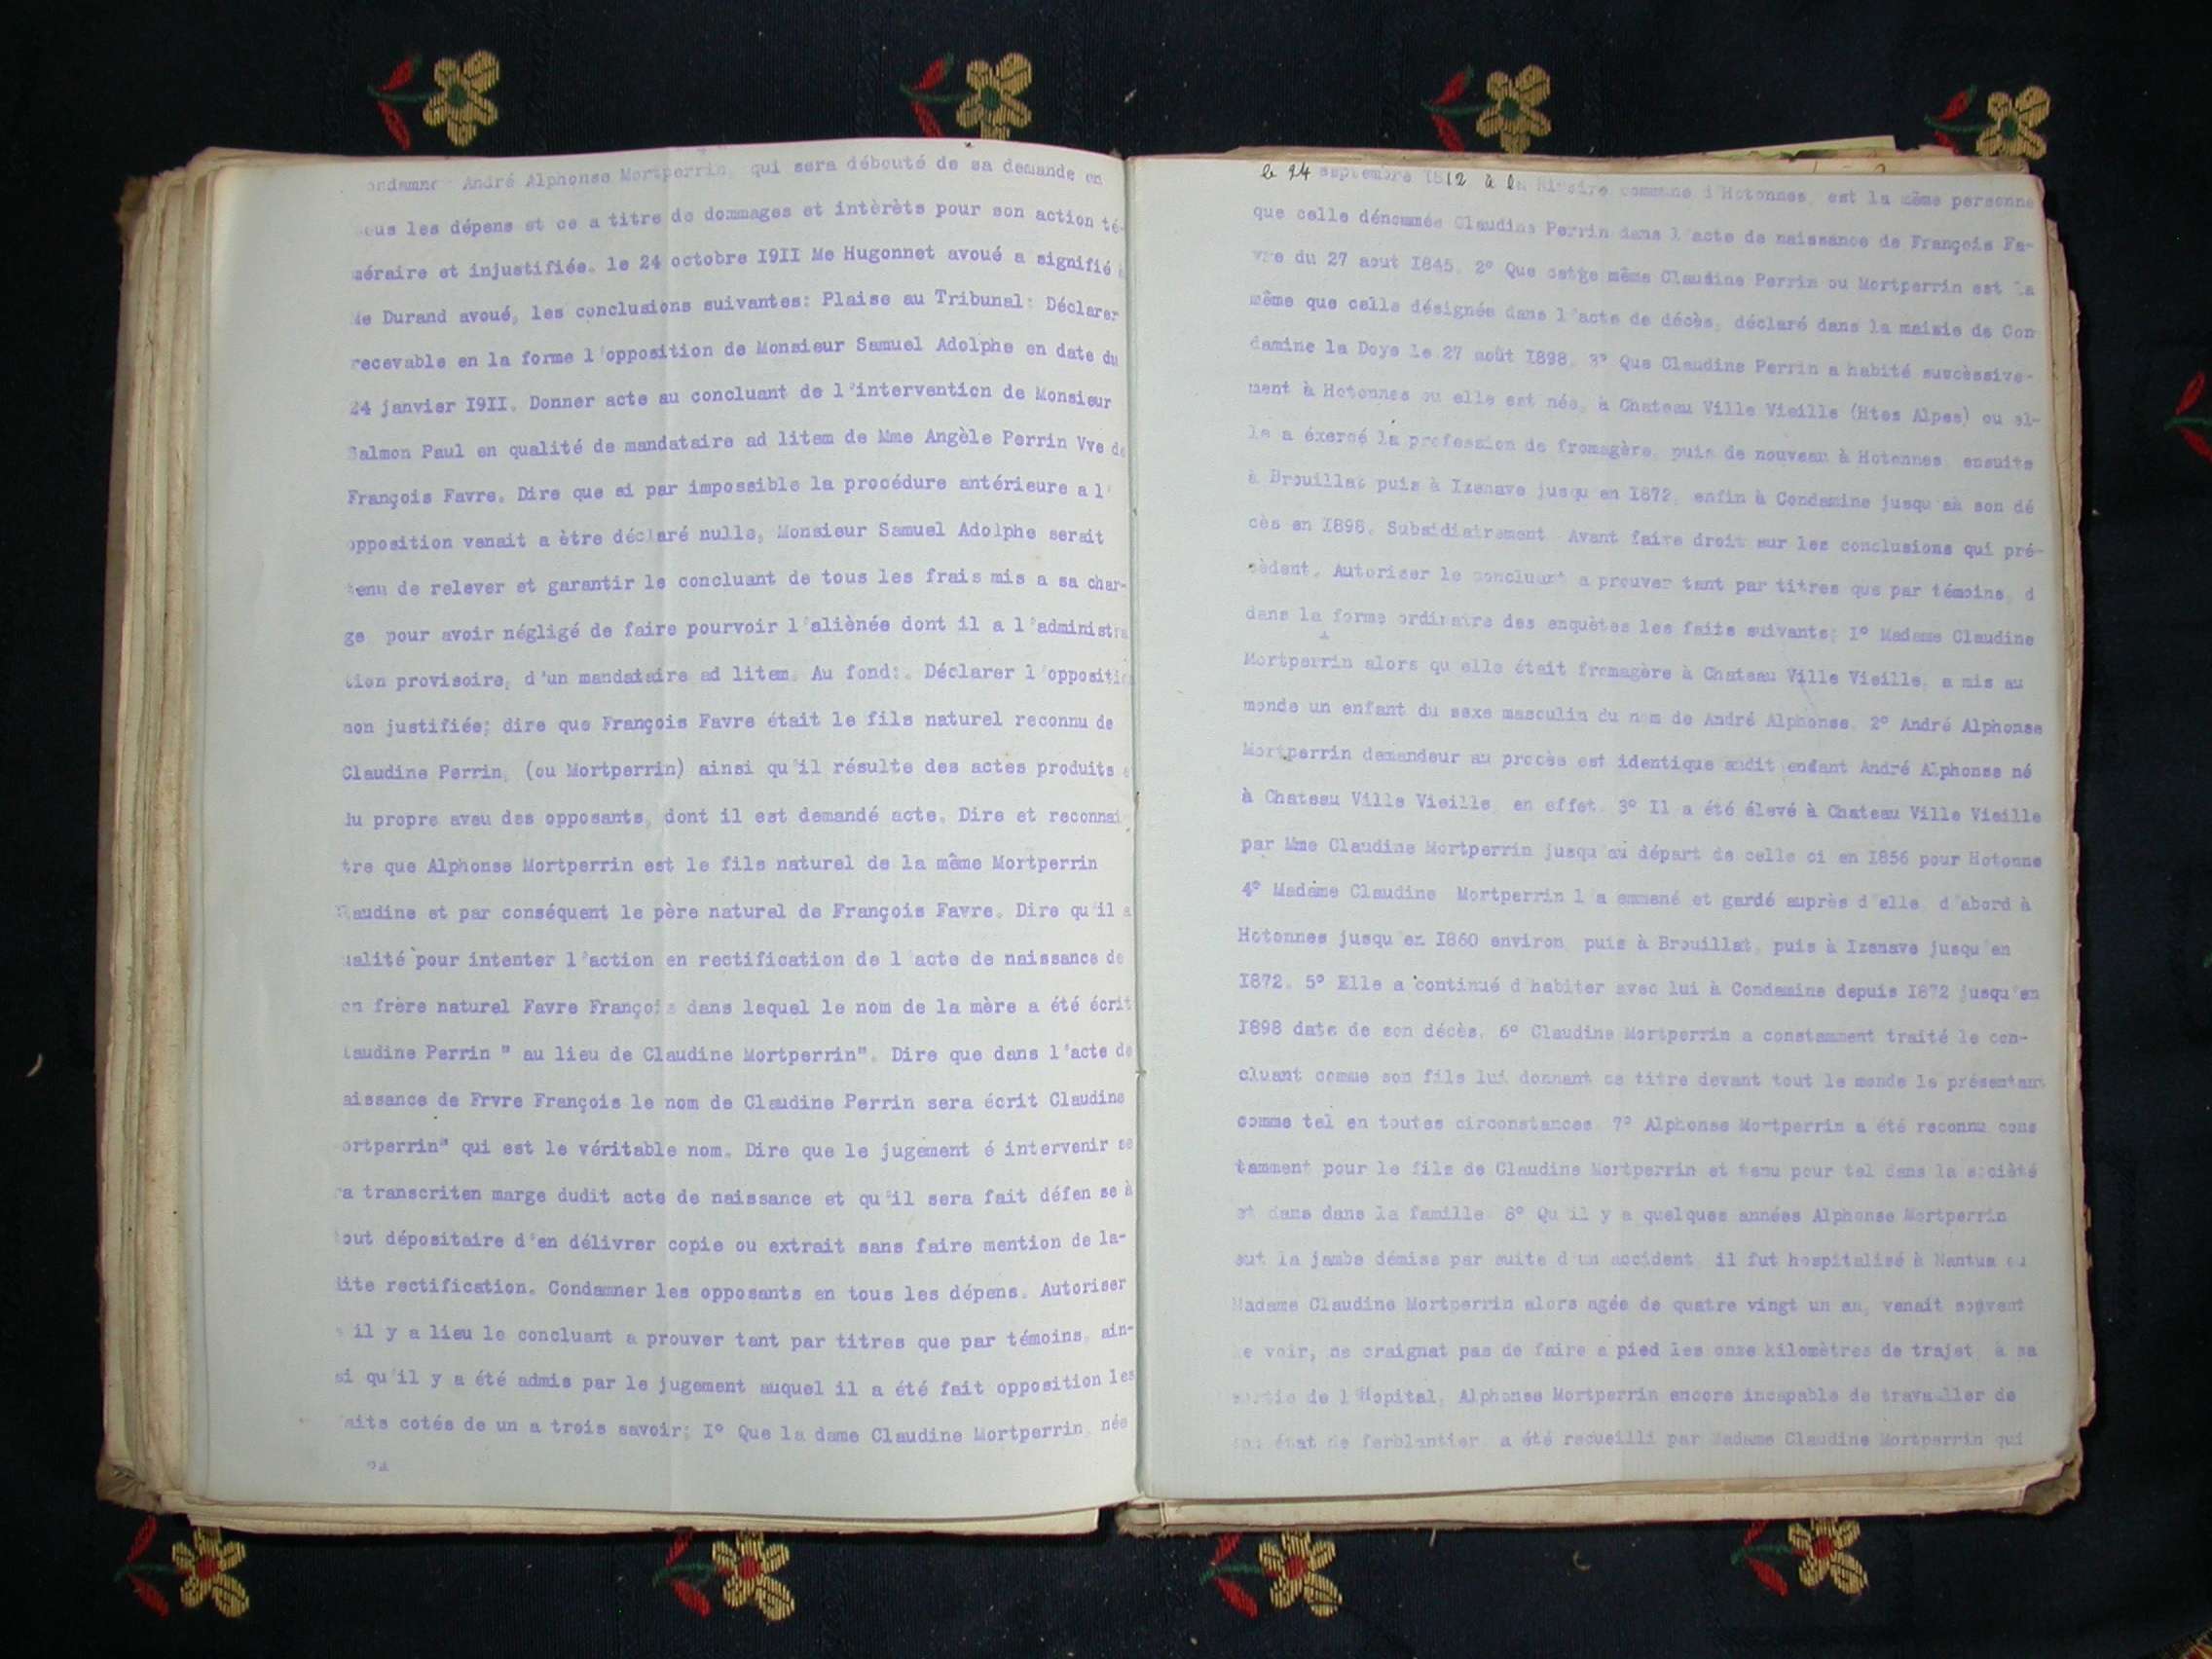 ondamner André Alphonse Mortperrin, qui sera débouté de sa demande en
ous les dépens et ce a titre de dommages et intèrèts pour son action té-
méraire et injustifiée. le 24 octobre I9II Me Hugonnet avoué a signifié
Me Durand avoué, les conclusions suivantes: Plaise au Tribunal: Déclarer
recevable en la forme l'opposition de Monsieur Samuel Adolphe en date du
24 janvier I9II. Donner acte au concluant de l'intervention de Monsieur
Salmon Paul en qualité de mandataire ad litem de Mme Angèle Perrin Vve de
François Favre. Dire que si par impossible la procédure antérieure a l'
opposition venait a ètre déclaré nulle, Monsieur Samuel Adolphe serait
tenu de relever et garantir le concluant de tous les frais mis a sa char-
ge pour avoir négligé de faire pourvoir l'aliènée dont il a l'administra
tion provisoire, d'un mandataire ad litem. Au fond:. Déclarer l'oppositio
non justifiée; dire que François Favre était le fils naturel reconnu de
Claudine Perrin, (ou Mortperrin) ainsi qu'il résulte des actes produits e
du propre aveu des opposants, dont il est demandé acte. Dire et reconnai
tre que Alphonse Mortperrin est le fils naturel de la même Mortperrin
Claudine et par conséquent le père naturel de François Favre. Dire qu'il a
ualité pour intenter l'action en rectification de l'acte de naissance de
on frère naturel Favre François dans lequel le nom de la mère a été écrit
laudine Perrin " au lieu de Claudine Mortperrin". Dire que dans l'acte de
aissance de Frvre François le nom de Claudine Perrin sera écrit Claudine
ortperrin" qui est le véritable nom. Dire que le jugement é intervenir se
ra transcriten marge dudit acte de naissance et qu'il sera fait défen se à
tout dépositaire d'en délivrer copie ou extrait sans faire mention de la-
dite rectification. Condamner les opposants en tous les dépens. Autoriser
s il y a lieu le concluant a prouver tant par titres que par témoins, ain-
si qu'il y a été admis par le jugement auquel il a été fait opposition les
faits cotés de un a trois savoir; I° Que la dame Claudine Mortperrin, née
le 24 septembre 1812 à la commune d'Hotonnes, est la même personne
que celle dénommée Claudine Perrin dans l'acte de naissance de François Fa-
vre du 27 aout I845. 2° Que cetge même Claudine Perrin ou Mortperrin est la
même que celle désignée dans l'acte de décès, déclaré dans la maisie de Con
damine la Doye le 27 août I898. 3° Que Claudine Perrin a habité succèssive-
ment à Hotonnes ou elle est née, à Chateau Ville Vieille (Htes Alpes) ou el-
le a éxercé la profession de fromagère, puis de nouveau à Hotonnes, ensuite
à Brouillat puis à Izenave jusqu'en I872, enfin à Condamine jusqu'àà son dé
cès en I898. Subsidiairement Avant faire droit sur les conclusions qui pré-
cèdent. Autoriser le concluant a prouver tant par titres que par témoins, d
dans la forme ordinaire des enquètes les faits suivants; I° Madame Claudine
Mortperrin alors qu'elle était fromagère à Chateau Ville Vieille, a mis au
monde un enfant du sexe masculin du nom de André Alphonse. 2° André Alphonse
Mortperrin demandeur au procès est identique audit endant André Alphonse né
à Chateau Ville Vieille, en effet. 3° Il a été élevé à Chateau Ville Vieille
par Mme Claudine Mortperrin jusqu'au départ de celle ci en I856 pour Hotonne
4° Madame Claudine Mortperrin l'a emmené et gardé auprès d'elle, d'abord à
Hotonnes jusqu'en I860 environ, puis à Brouillat, puis à Izenave jusqu'en
I872. 5° Elle a continué d'habiter avec lui à Condamine depuis I872 jusqu'en
I898 date de son décès. 6° Claudine Mortperrin a constamment traité le con-
cluant comme son fils lui donnant ce titre devant tout le monde le présentant
comme tel en toutes circonstances. 7° Alphonse Mortperrin a été reconnu cons
tamment pour le fils de Claudine Mortperrin et tenu pour tel dans la société
et dans dans la famille. 8° Qu'il y a quelques années Alphonse Mortperrin
eut la jambe démise par suite d'un accident, il fut hospitalisé à Nantua ou
Madame Claudine Mortperrin alors agée de quatre vingt un an, venait souvent
le voir, ne craignat pas de faire a pied les onze kilomètres de trajet, à sa
sortie de l'Hopital, Alphonse Mortperrin encore incapable de travailler de
son état de ferblantier, a été recueilli par Madame Claudine Mortperrin qui